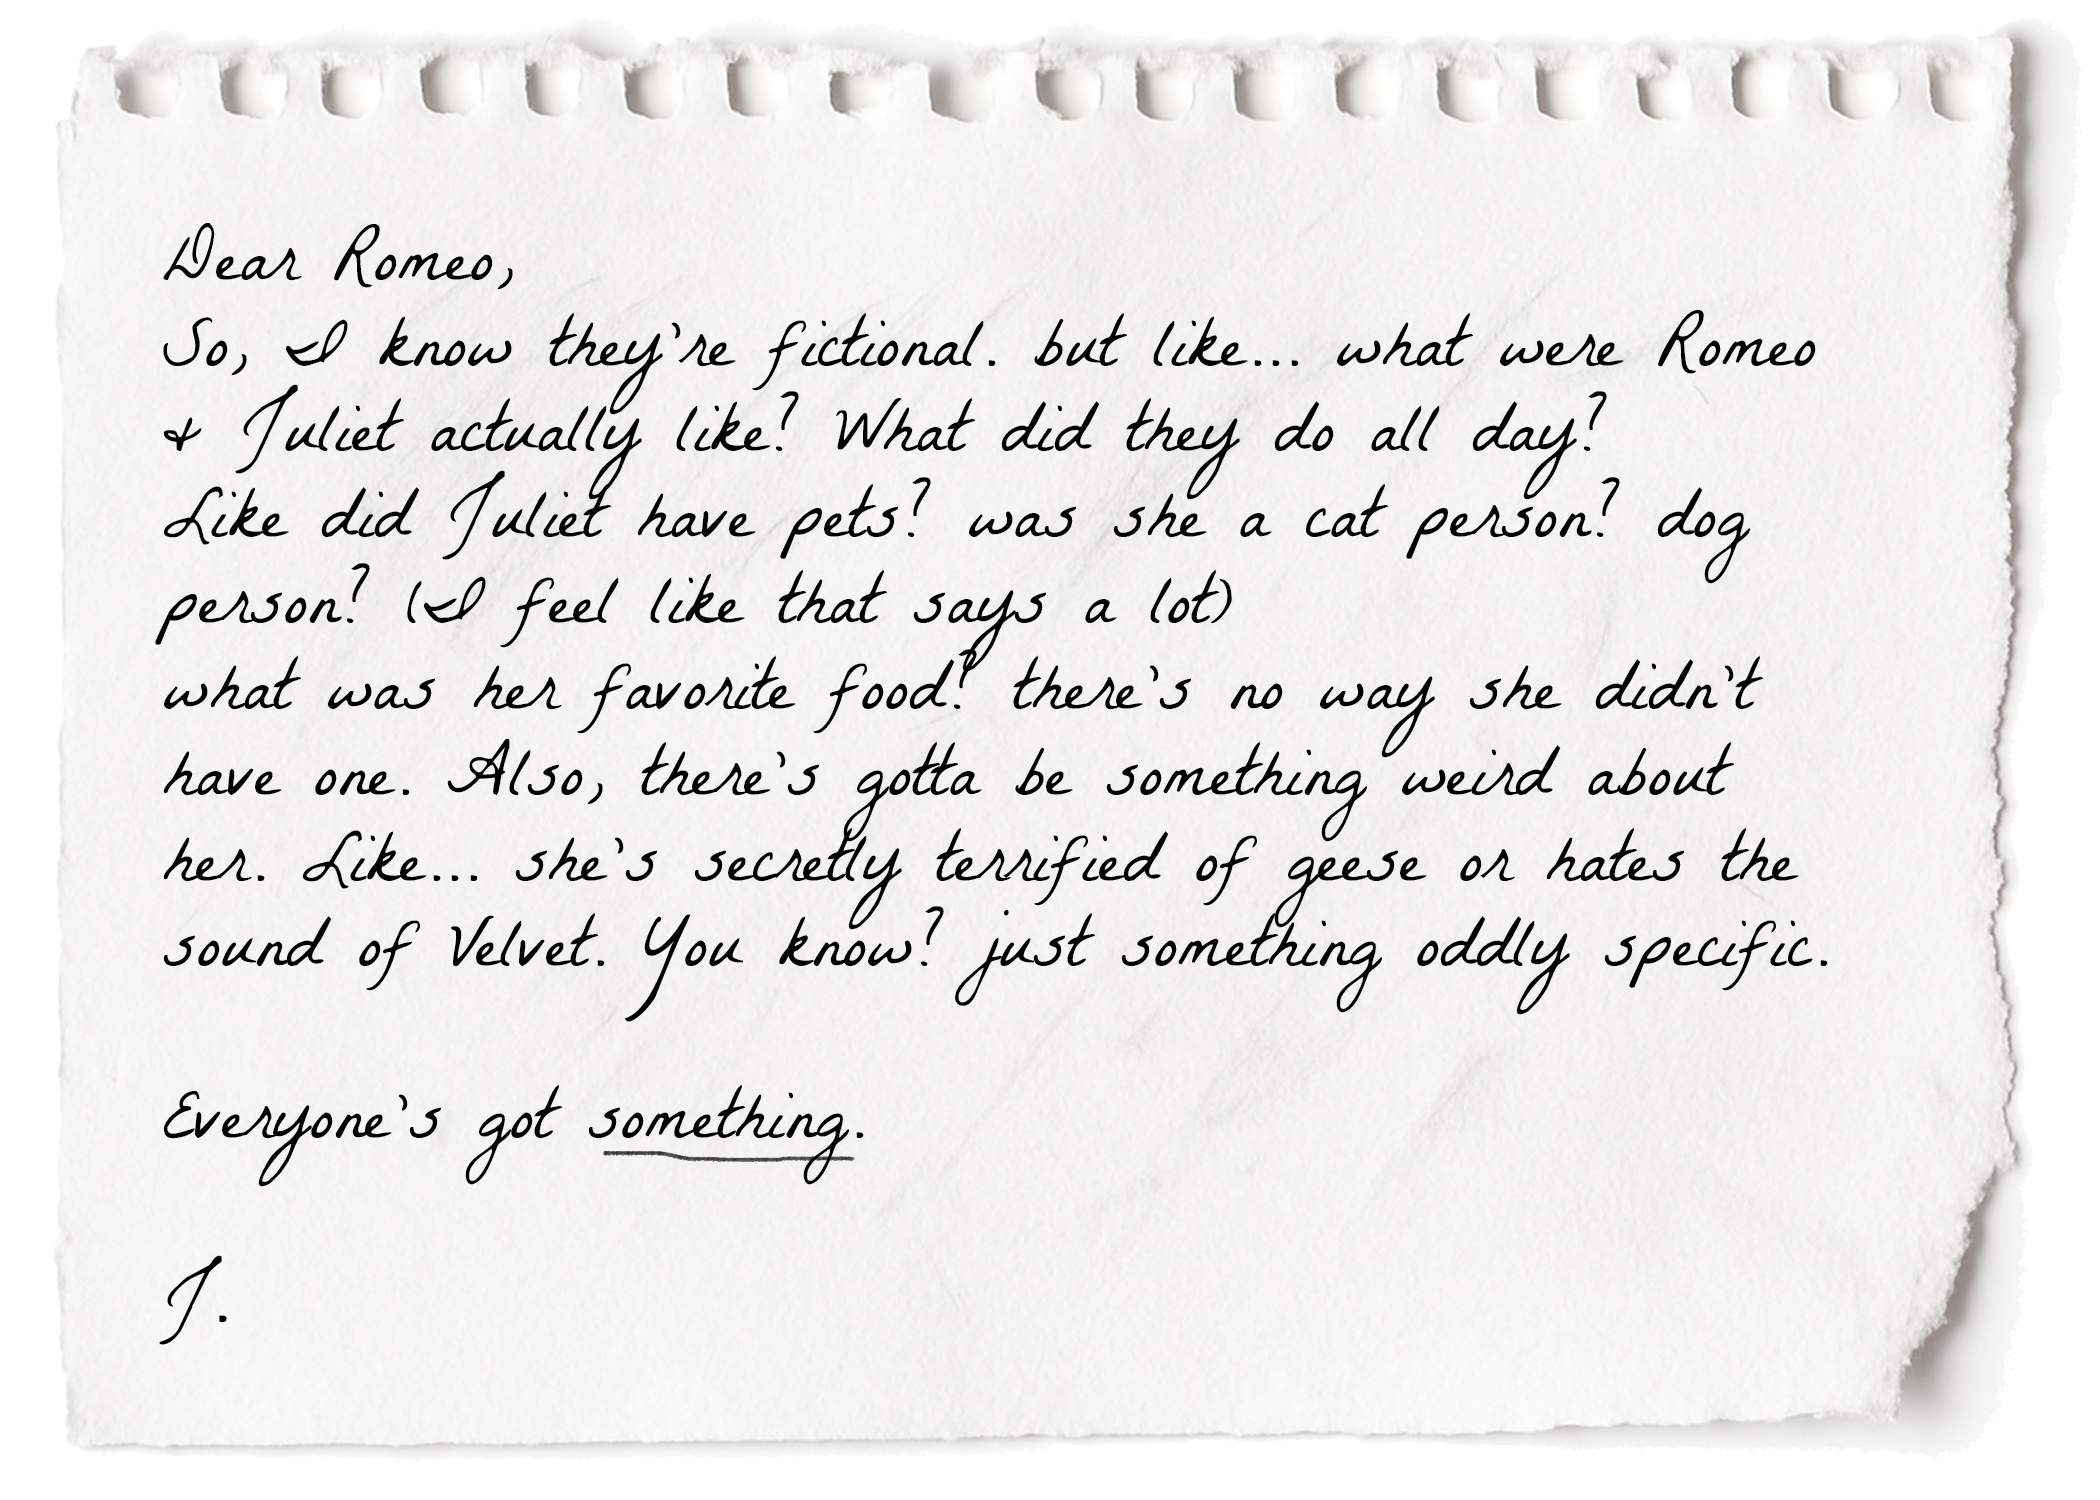 Dear Romeo,
So, I know they're fictional. but like... what were Romeo
& Juliet actually like? What did they do all day?
Like did Juliet have pets? was she a cat person? dog
person? (I feel like that says a lot)
what was her favorite food? there's no way she didn't
have one. Also, there's gotta be something weird about
her. Like... she's secretly terrified of geese or hates the
sound of Velvet. You know? just something oddly specific.
Everyone's got something.
J.